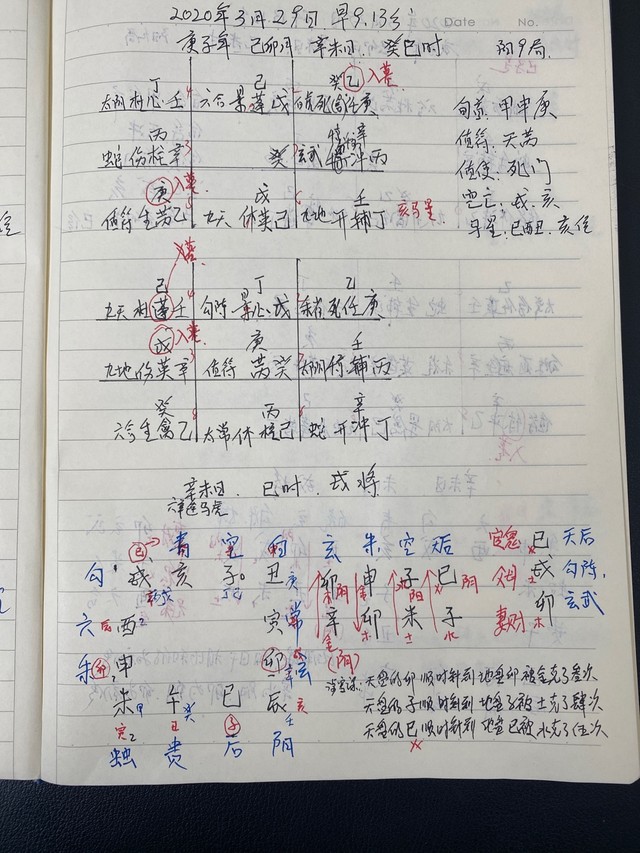 2020年3月29日 早9.13分
Date No.
庚子年 己卯月 辛未日 癸巳时 阳9局
丁 己 癸乙入墓
太阴杜心壬 六合景蓬戊 死任庚
旬首:甲申庚
丙 辛
蛇伤柱辛 癸 玄武 冲丙
值符:天芮
值使:死门
庚入墓 戊 壬
值符生芮乙 九天休英己 九地开辅丁 亥马星
空亡:戌.亥
马星:巳酉丑.亥位
入墓
己 丁 乙
九天杜蓬壬 勾陈景心戊 朱雀死任庚
戊入墓 庚 壬
九地伤英辛 值符芮癸 太阴惊辅丙
癸 丙 辛
六合生禽乙 太常休柱己 蛇开冲丁
辛未日.巳时.戌将
六辛逢马虎
巳 青 空 白 玄 朱 空 后 官鬼 巳 天后
勾 戌 亥 子 丑 卯 申 子 巳 父母 戌 勾陈
六 酉 寅 常 辛 卯 未 子 妻财 卯 玄武
朱 申 卯 玄 (阴)
涉害课:天盘的卯顺时针到地盘卯被金克了叁次
未 午 巳 辰 天盘的子顺时针到地盘子被土克了肆次
蛇 贵 后 阴 天盘的巳顺时针到地盘巳被水克了伍次